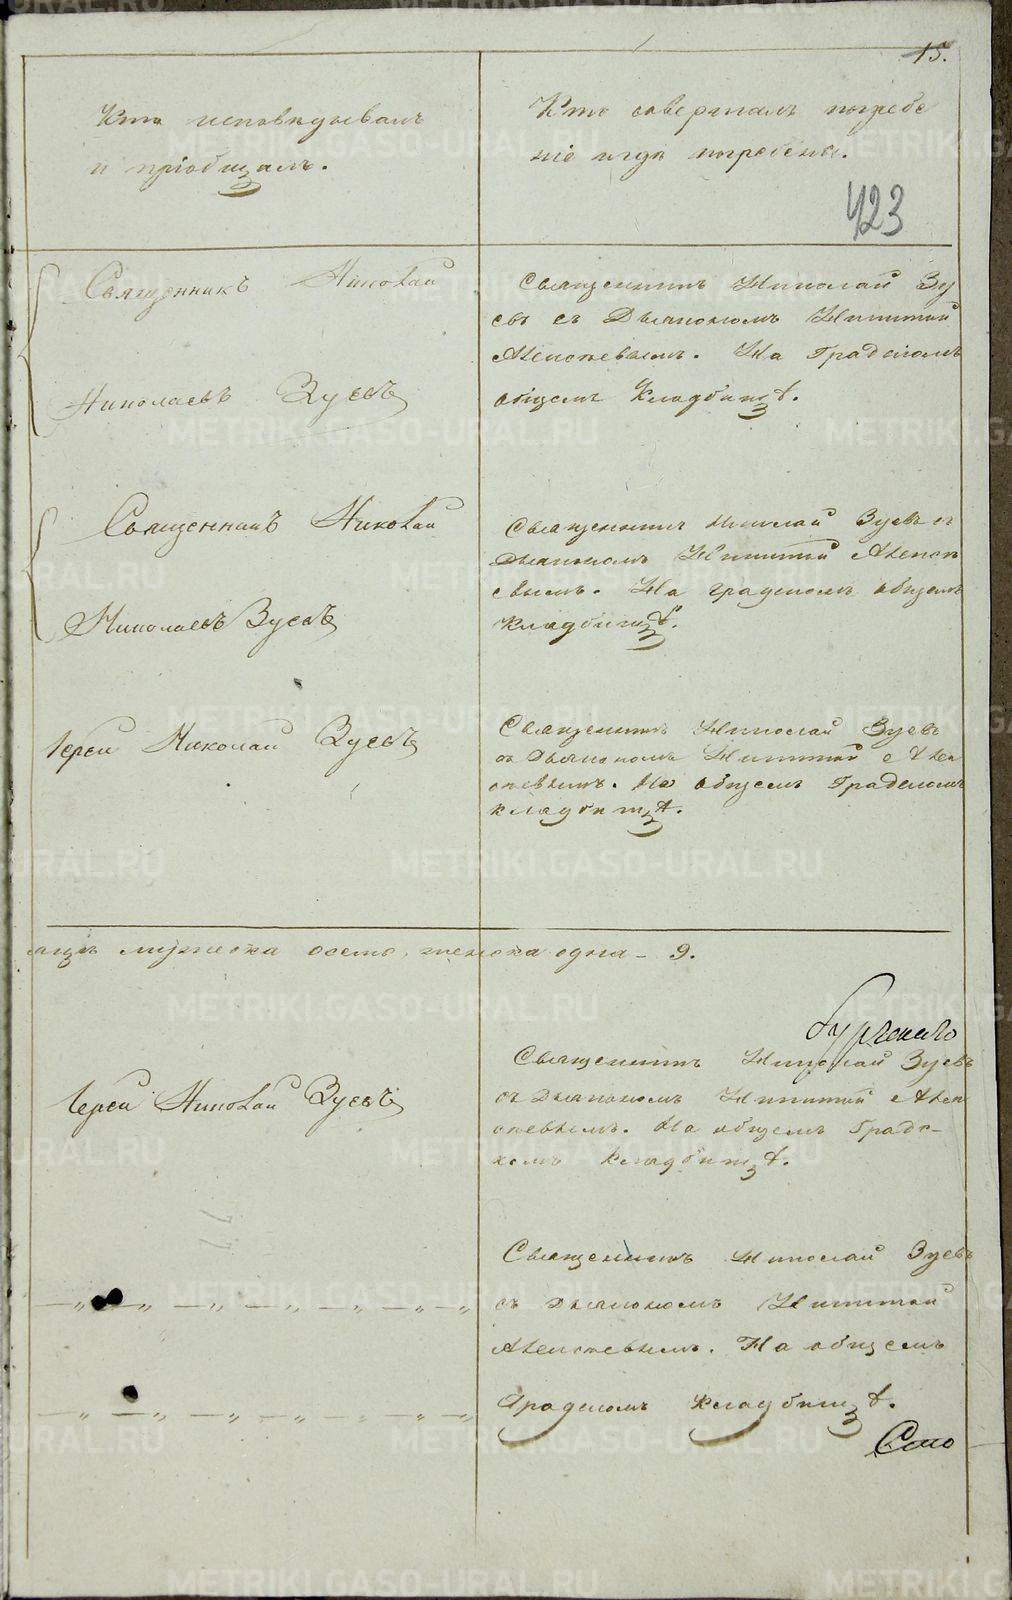 15.
Кто исповѣдывалъ
и пріобщалъ.
Кто совершалъ погребе
ніе и гдѣ погребены.
423
Священникъ Николай
Николаевъ Зуевъ
Священникъ Николай Зу
евъ съ Дьякономъ Никитой
На Градскомъ
общемъ Кладбищѣ.
Священникъ Николай
Николаевъ Зуевъ
Священникъ Николай Зуевъ съ
Дьякономъ Никитой
На градскомъ общемъ
Кладбищѣ.
Іерей Николай Зуевъ
Священникъ Николай Зуевъ
съ Дьякономъ Никитой
На общемъ Градскомъ
кладбищѣ.
мужеска осемь, женска одна - 9.
Іерей Николай Зуевъ
Священникъ Николай Зуевъ
съ Дьякономъ Никитой
На общемъ Градс-
комъ Кладбищѣ.
Священникъ Николай Зуевъ
съ Дьякономъ Никитой
На общемъ
Градскомъ Кладбищѣ.
METRIKI.GASO-URAL.RU